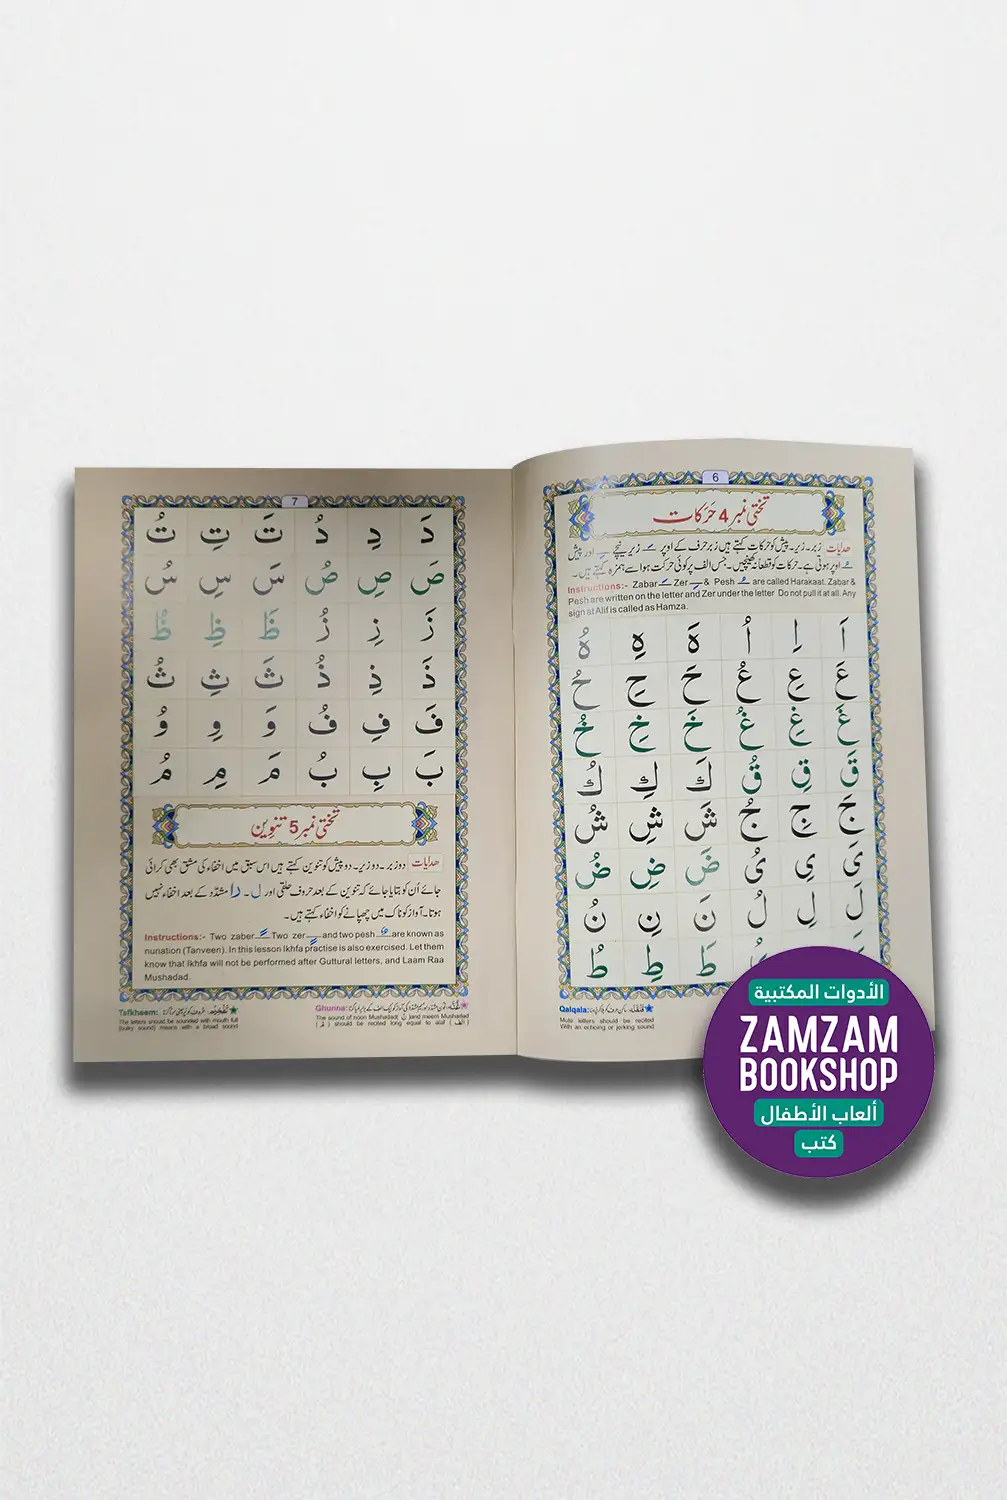 6
تختی نمبر 4 حَرَکات
ھدایات زبر۔زیر۔پیش کو حرکات کہتے ہیں زبر حرف کے اوپر ـَ زیر نیچے ـِ اور پیش
ـُ اوپر ہوتی ہے۔ حرکات کو قطعا نہ کھینچیں۔ جس الف پر کوئی حرکت ہو اسے ہمزہ کہتے ہیں۔
Instructions:- Zabar ـَ Zer ـِ & Pesh ـُ are called Harakaat. Zabar &
Pesh are written on the letter and Zer under the letter Do not pull it at all. Any
sign at Alif is called as Hamza.
اَ اِ اُ هَ هِ هُ
عَ عِ عُ حَ حِ حُ
غَ غِ غُ خَ خِ خُ
قَ قِ قُ كَ كِ كُ
جَ جِ جُ شَ شِ شُ
یَ یِ یُ ضَ ضِ ضُ
لَ لِ لُ نَ نِ نُ
طَ طِ طُ
Qalqala: قَلْقَلَہ:
Mute letters should be recited
With an echoing or jerking sound
7
دَ دِ دُ تَ تِ تُ
صَ صِ صُ سَ سِ سُ
زَ زِ زُ ظَ ظِ ظُ
ذَ ذِ ذُ ثَ ثِ ثُ
فَ فِ فُ وَ وِ وُ
بَ بِ بُ مَ مِ مُ
تختی نمبر 5 تنوین
ھدایات دو زبر۔دو زیر۔ دو پیش کو تنوین کہتے ہیں اس سبق میں اخفاء کی مشق بھی کرائی
جائے اُن کو بتایا جائے کہ تنوین کے بعد حروف حلقی اور ل۔ را مشدّد کے بعد اخفاء نہیں
ہوتا۔ آواز کو ناک میں چھپانے کو اخفاء کہتے ہیں۔
Instructions:- Two zaber ـً Two zer ـٍ and two pesh ـٌ are known as
nunation (Tanveen). In this lesson Ikhfa practise is also exercised. Let them
know that Ikhfa will not be performed after Guttural letters, and Laam Raa
Mushadad.
Ghunna: غُنَّہ:
The sound of noon Mushadad( نّ )and meem Mushadad
( مّ ) should be recited long equal to alaf ( الف )
Tafkheem: تَفْخِیْم:
The letters should be sounded with mouth full
(bulky sound) means with a broad sound
الأدوات المكتبية
ZAMZAM
BOOKSHOP
ألعاب الأطفال
كتب